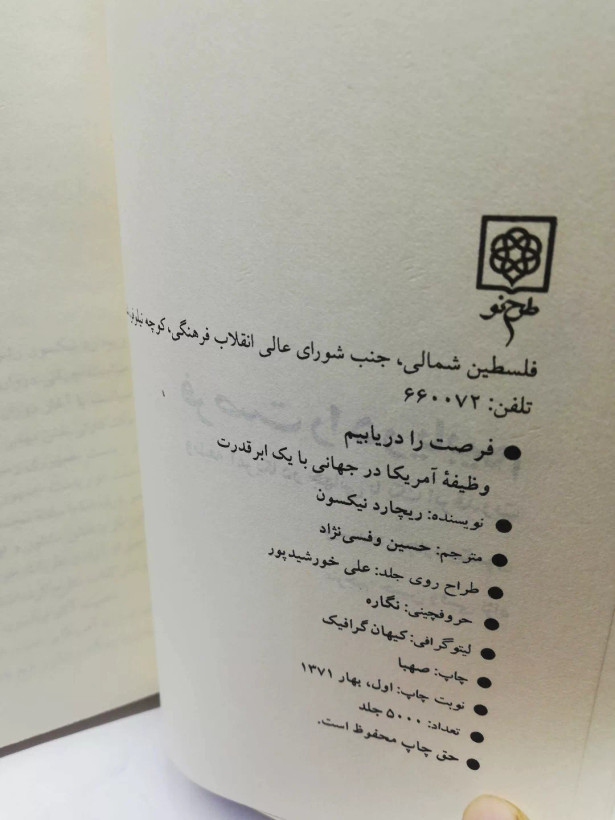 طرح نو
فلسطین شمالی، جنب شورای عالی انقلاب فرهنگی، کوچه
تلفن: ۶۶۰۰۷۲
● فرصت را دریابیم
وظیفهٔ آمریکا در جهانی با یک ابرقدرت
● نویسنده: ریچارد نیکسون
● مترجم: حسین وفسی‌نژاد
● طراح روی جلد: علی خورشیدپور
● حروفچینی: نگاره
● لیتوگرافی: کیهان گرافیک
● چاپ: صهبا
● نوبت چاپ: اول، بهار ۱۳۷۱
● تعداد: ۵۰۰۰ جلد
● حق چاپ محفوظ است.